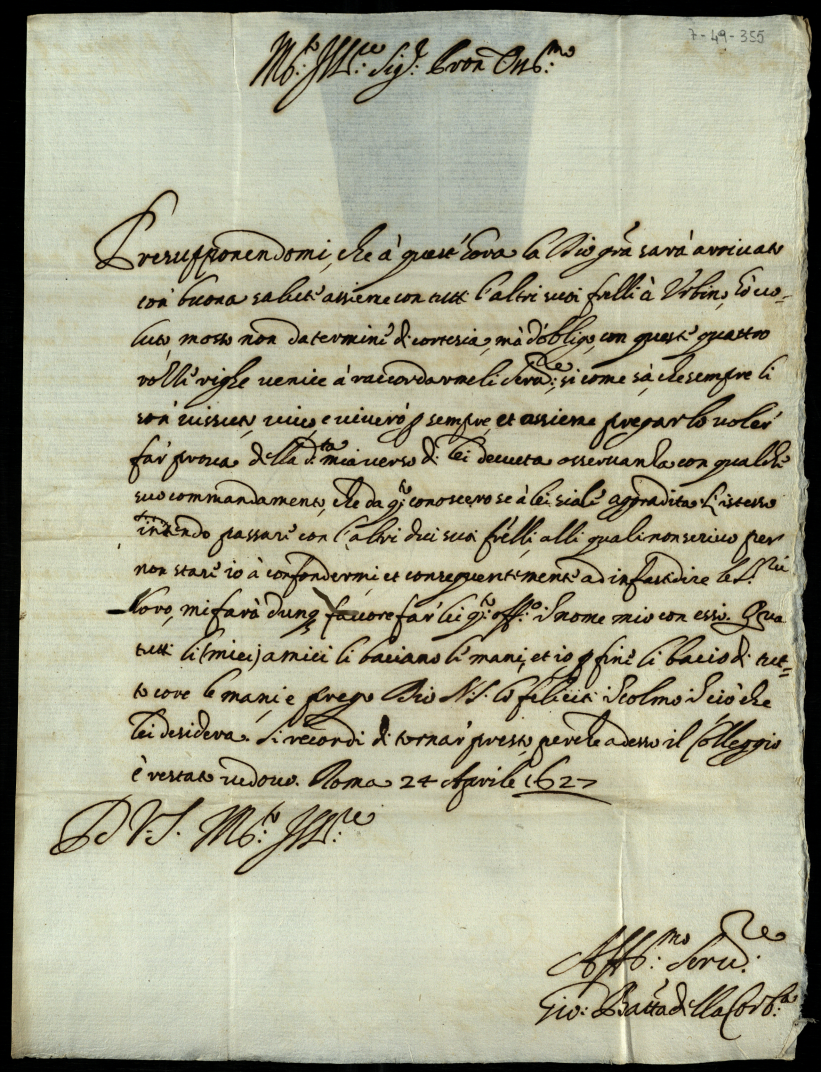 7-49-355
M.to Ill.re Sig.r Pron Oss.mo
Presupponendomi, che à quest'hora la Dio gra sarà arrivato
con buona salute assieme con tutti l'altri suoi frelli à Urbino, hò vo-
luto mosso non da termine di cortesia, mà d'obligo, con queste quattro
righe venire à raccordarmeli Serv.re, si come sà, che sempre li
son vissuto, vivo, e viverò p sempre, et assieme pregarlo voler
far prova della d.ta mia verso di lei devota osservanza con qualche
suo commandamento, che da q.to conoscerò se à lei sia aggradita. L'istesso
intendo passare con l'altri dui suoi frelli, alli quali non scrivo per
non stare io à confondermi, et conseguentemente ad infastidire le S.rie
loro, mi farà dunq favore far lei q.to off.o in nome mio con essi. Qua
tutti li (miei) amici li baciano le mani, et io p fine li bacio di tut-
to core le mani, e prego Dio N.S. lo feliciti in colmo di ciò che
lei desidera. Si recordi di tornar presto, perche adesso il Colleggio
è restato vedovo. Roma 24 Aprile 1627
D V.S. M.to Ill.re
Aff.mo Serv.re
Gio: Batta della Corb.a